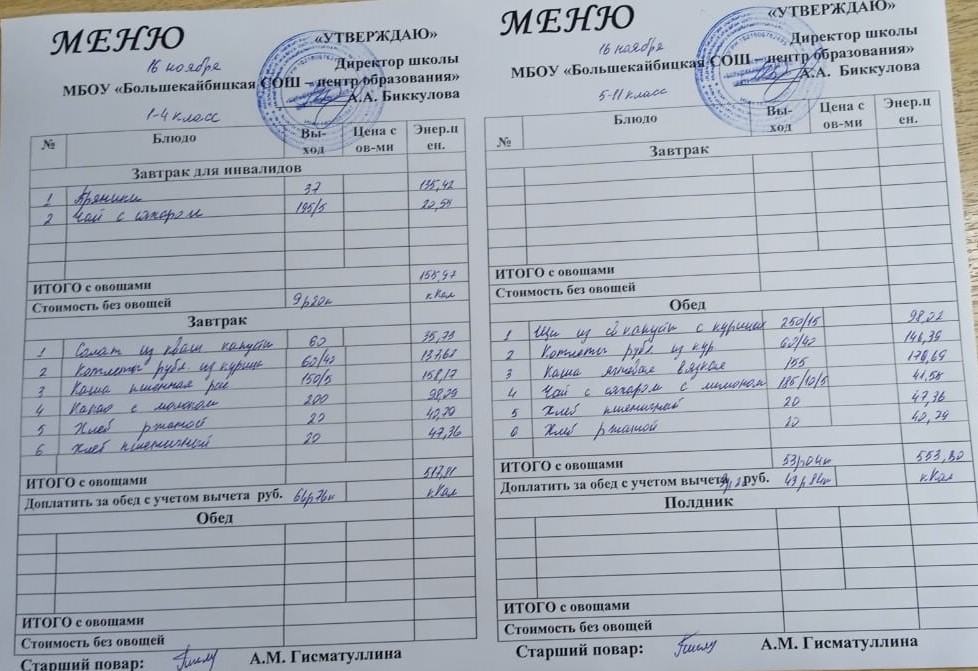 МЕНЮ
«УТВЕРЖДАЮ»
16 ноября
Директор школы
МБОУ «Большекайбицкая СОШ – центр образования»
А.А. Биккулова
1-4 класс
№ Блюдо Вы-ход Цена с ов-ми Энер.ц ен.
Завтрак для инвалидов
1 Пряники 37 135,42
2 Чай с сахаром 195/5 20,55
ИТОГО с овощами 155,97
Стоимость без овощей 9р20к кКал
Завтрак
1 Салат из кваш капусты 60 35,73
2 Котлеты рубл. из курицы 60/40
3 Каша пшенная 150/5 158,17
4 Какао с молоком 200
5 Хлеб ржаной 20
6 Хлеб пшеничный 20 47,36
ИТОГО с овощами 517,81
Доплатить за обед с учетом вычета руб. кКал
Обед
ИТОГО с овощами
Стоимость без овощей
Старший повар: А.М. Гисматуллина
МЕНЮ
«УТВЕРЖДАЮ»
16 ноября
Директор школы
МБОУ «Большекайбицкая СОШ – центр образования»
А.А. Биккулова
5-11 класс
№ Блюдо Вы-ход Цена с ов-ми Энер.ц ен.
Завтрак
ИТОГО с овощами
Стоимость без овощей
Обед
1 Щи из капусты с курицей 250/15 98,02
2 Котлеты рубл. из кур. 60/40
3 Каша вязкая 155
4 Чай с сахаром с лимоном 185/10/5 41,58
5 Хлеб пшеничный 20 47,36
6 Хлеб ржаной 20
ИТОГО с овощами 53р04к 553,80
Доплатить за обед с учетом вычета руб. 43р84к кКал
Полдник
ИТОГО с овощами
Стоимость без овощей
Старший повар: А.М. Гисматуллина